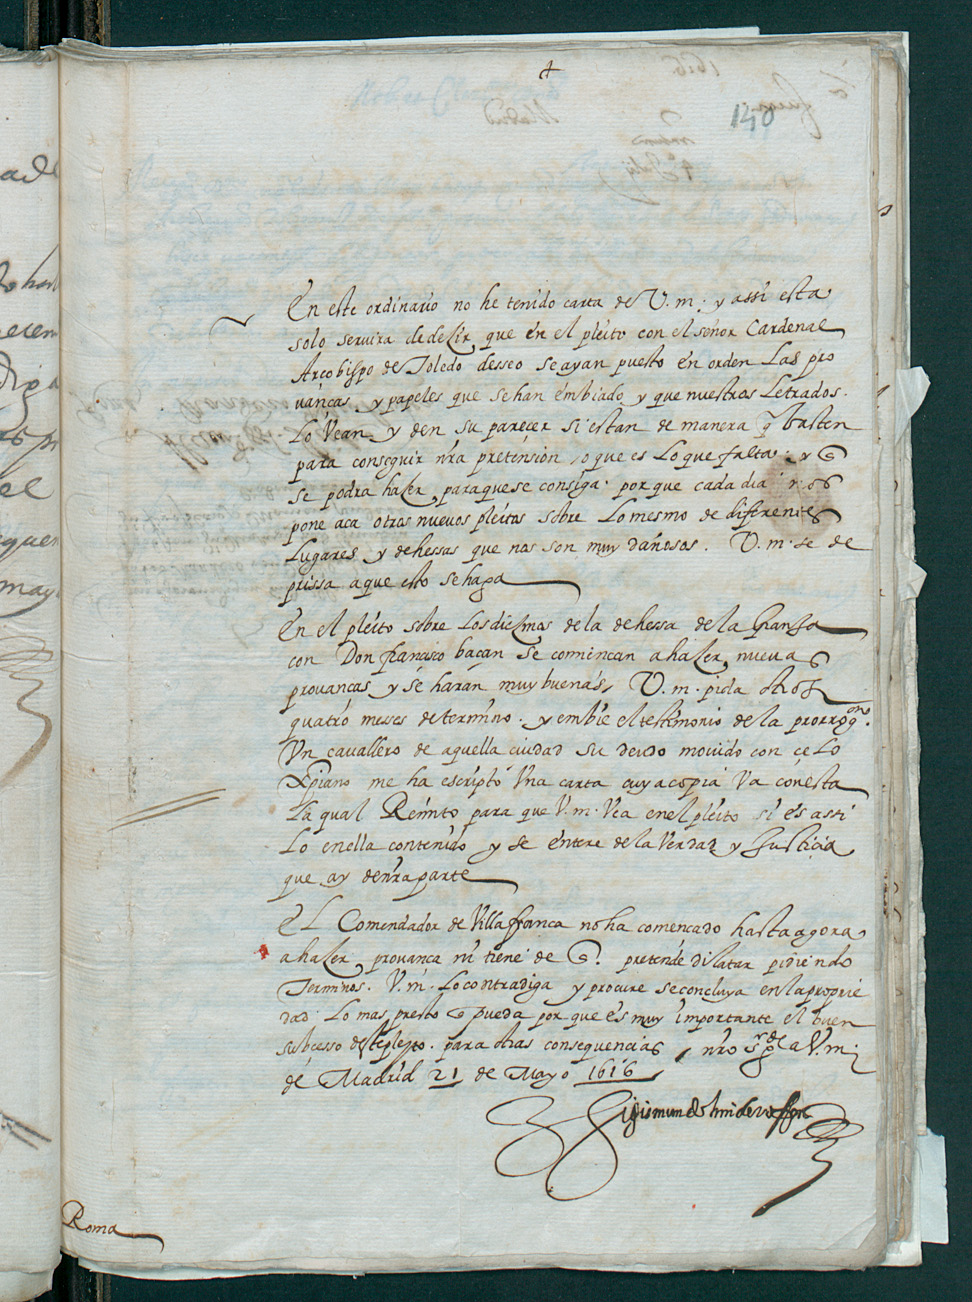 140
En este ordinario no he tenido carta de V.m. y assi esta
solo servira de deZir, que en el pleito con el señor Cardenal
Arcobispo de Toledo desseo se ayan puesto en orden Las pro
vanças y papeles que se han embiado y que nuestros Letrados.
Lo Vean y den su parecer si estan de manera q̃ basten
para conseguir nr̃a pretension, o que es Lo que falta. y
se podra haZer, para que se consiga. por que cada dia nos
pone aca otros nuevos pleitos sobre Lo mesmo de diferentes
Lugares y dehessas que nos son muy dañosos. V.m. se de
prissa a que esto se haga
En el pleito sobre Los dieZmos de la dehessa de la Granja
con Don francisco baçan se comiençan a haZer nuevas
provancas y se haran muy buenas, V.m. pida otros
quatro meses de termino. y embie el testimonio de la prorrogon.
Vn cavallero de aquella ciudad su deudo movido con çelo
Xpiano me ha escripto Vna carta cuya copia Va con esta
La qual Remito para que V.m. Vea en el pleito si es assi
Lo en ella contenido y se entere de la Verdad y Justicia
que ay de nr̃a parte
El Comendador de Villafranca no ha comencado hasta agora
a haZer provanca ni tiene de q̃. pretende dilatar pidiendo
Terminos. V.m. Lo contradiga y procure se concluya en la proprie
dad Lo mas presto q̃ pueda por que es muy importante el buen
subcesso deste pleyto. para otras consequencias, nr̃o sr gde a V.m.
de Madrid 21 de Mayo 1616
Roma